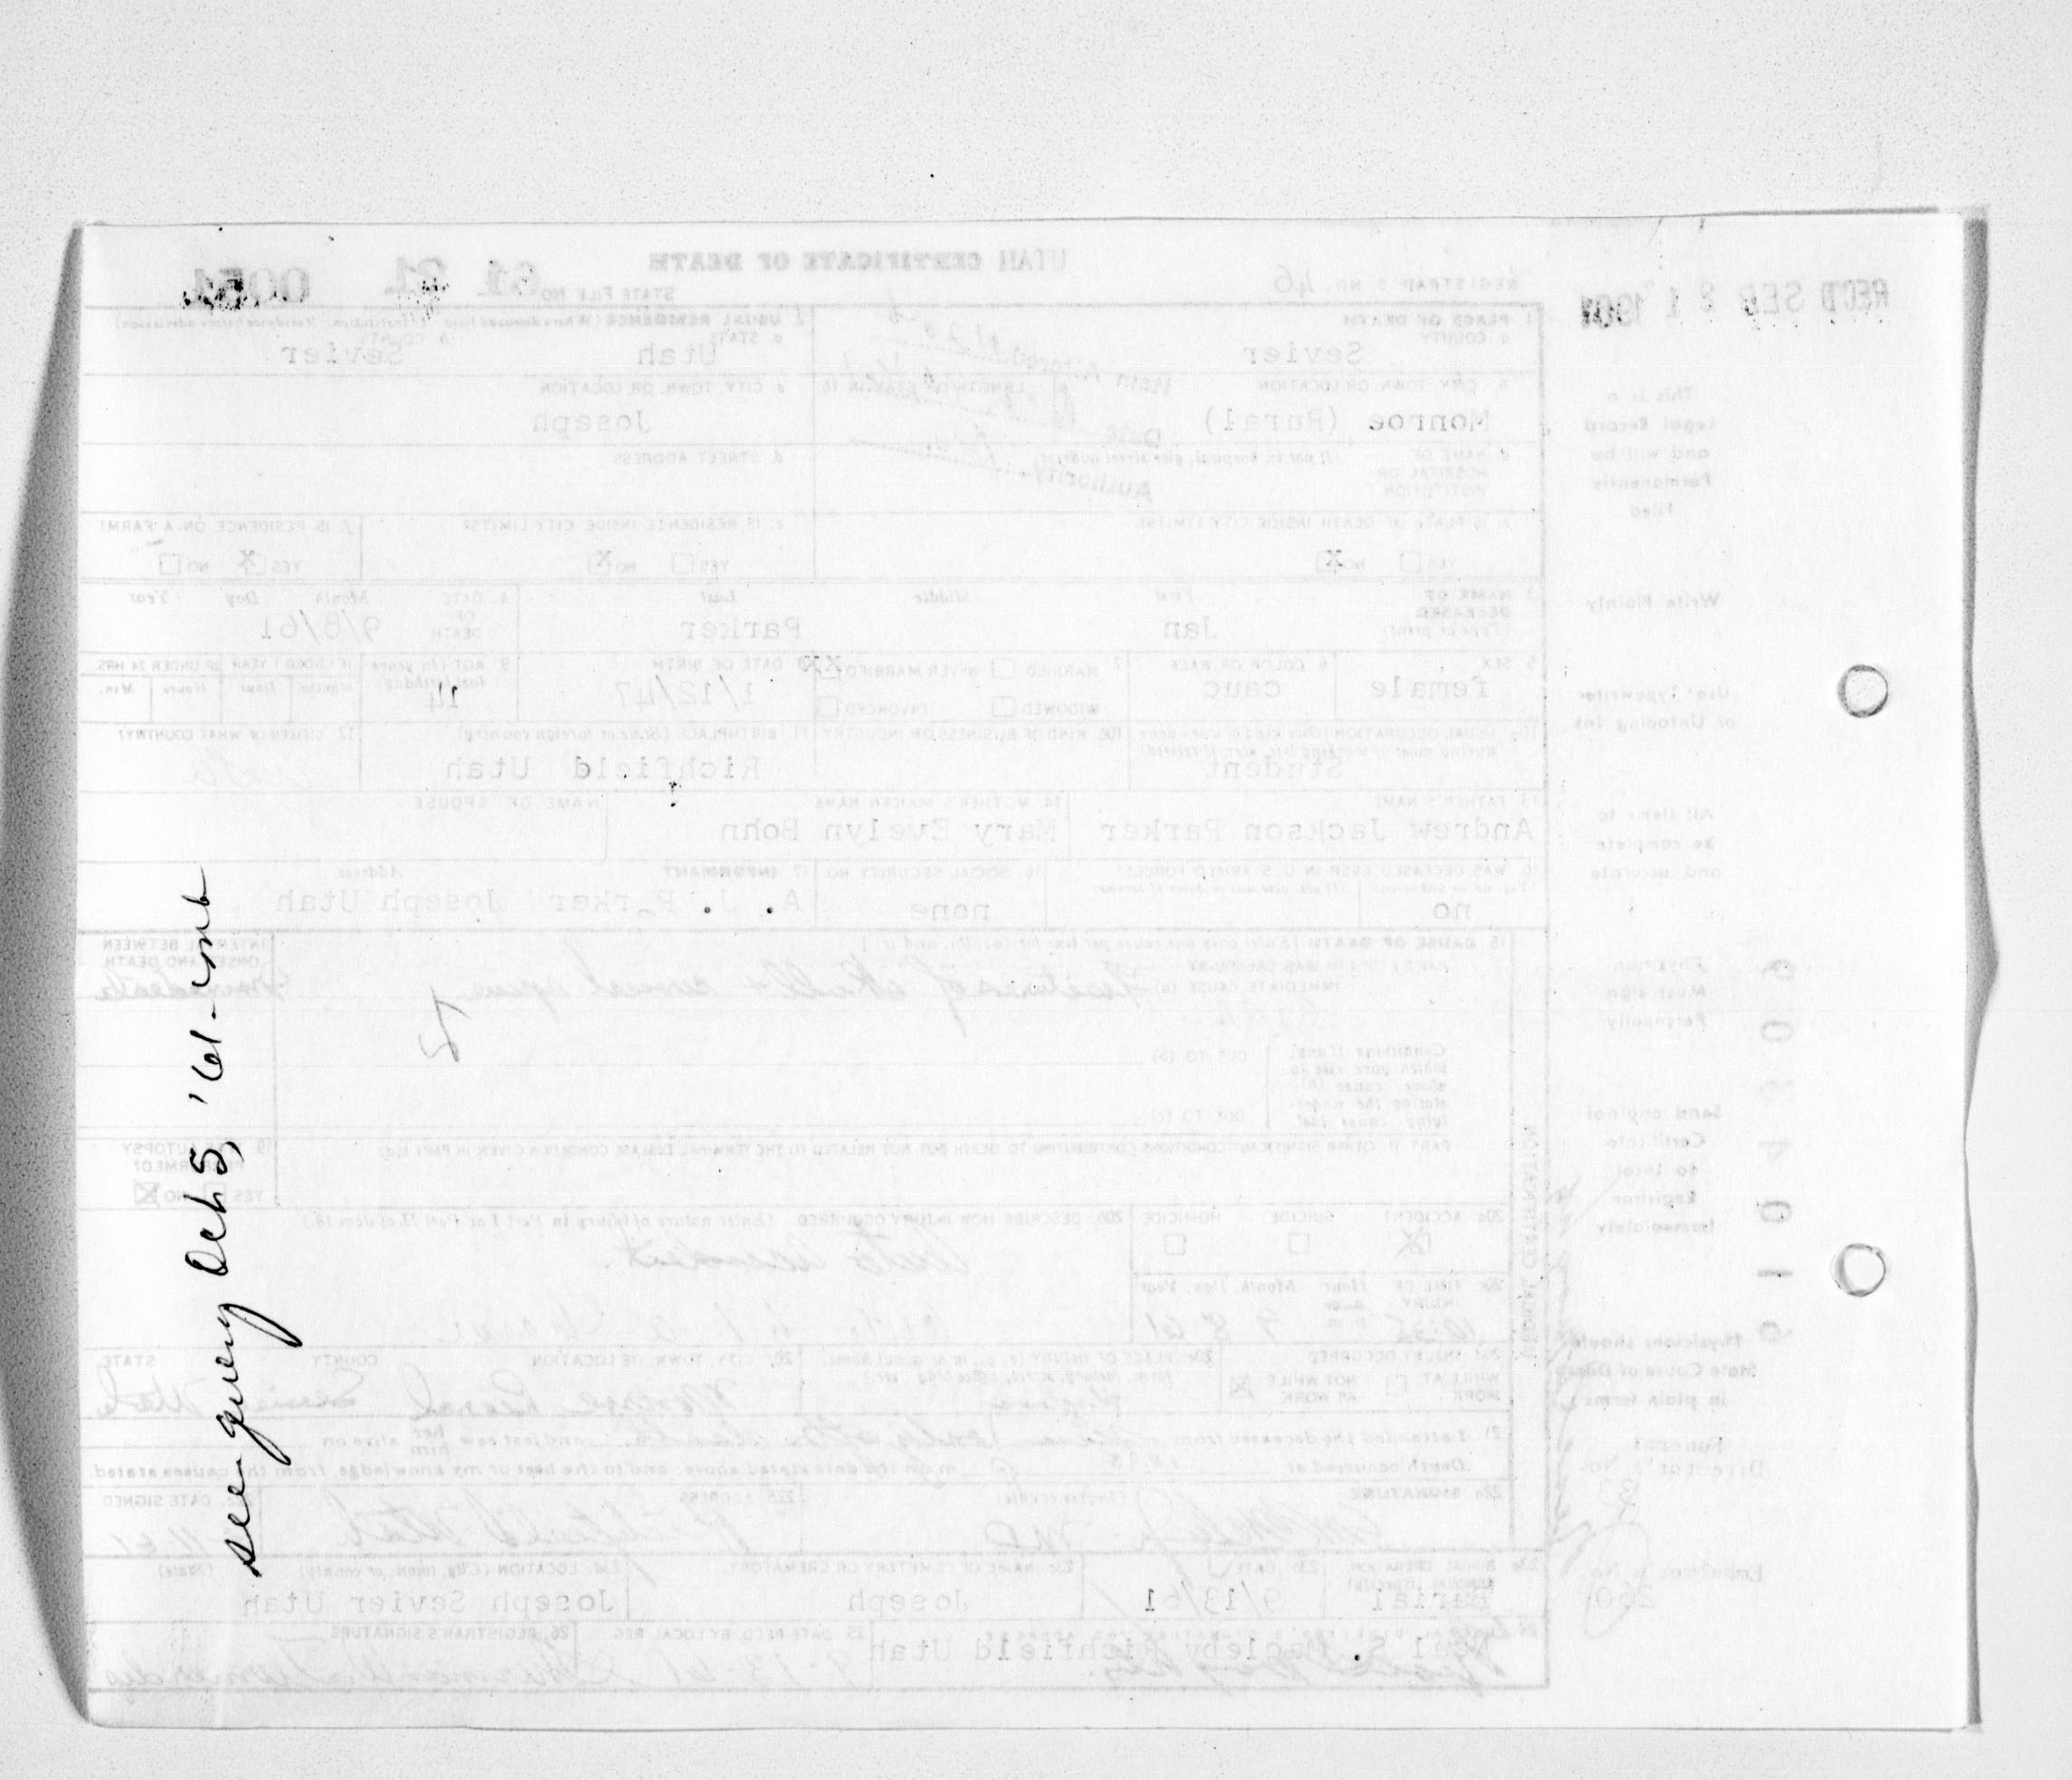 see query Oct 5, '61 - emb
UTAH CERTIFICATE OF DEATH
REGISTRAR'S NO. 46
STATE FILE NO. 61 21 0054
REC'D SEP 21 1961
1 PLACE OF DEATH
a. COUNTY
Sevier
2. USUAL RESIDENCE (Where deceased lived. If institution: Residence before admission)
a STATE
Utah
b COUNTY
Sevier
b. CITY, TOWN OR LOCATION
Monroe (Rural)
c. LENGTH OF STAY IN 1b
c CITY, TOWN, OR LOCATION
Joseph
Item Altered
Date
Authority
d NAME OF HOSPITAL OR INSTITUTION
(If not in hospital, give street address)
d. STREET ADDRESS
e. IS PLACE OF DEATH INSIDE CITY LIMITS?
YES NO X
e. IS RESIDENCE INSIDE CITY LIMITS?
YES NO X
f. IS RESIDENCE ON A FARM?
YES X NO
3 NAME OF DECEASED (Type or print)
First Middle Last
Jan Parker
4. DATE OF DEATH
Month Day Year
9/8/61
5 SEX
female
6 COLOR OR RACE
cauc
7 MARRIED NEVER MARRIED
WIDOWED DIVORCED
8 DATE OF BIRTH
1/12/47
9 AGE (In years last birthday)
14
IF UNDER 1 YEAR IF UNDER 24 HRS.
Months Days Hours Min.
10a USUAL OCCUPATION (Give kind of work done during most of working life, even if retired)
Student
10b KIND OF BUSINESS OR INDUSTRY
11 BIRTHPLACE (State or foreign country)
Richfield Utah
12. CITIZEN OF WHAT COUNTRY?
13 FATHER'S NAME
Andrew Jackson Parker
14 MOTHER'S MAIDEN NAME
Mary Evelyn Bohn
NAME OF SPOUSE
WAS DECEASED EVER IN U. S. ARMED FORCES?
no
16 SOCIAL SECURITY NO
none
17 INFORMANT Address
A. J. Parker Joseph Utah
18 CAUSE OF DEATH (Enter only one cause per line for (a), (b), and (c))
PART I DEATH WAS CAUSED BY
IMMEDIATE CAUSE (a) Fractures of skull + cervical spine
INTERVAL BETWEEN ONSET AND DEATH
Immediate
Conditions, if any, which gave rise to above cause (a) stating the underlying cause last
DUE TO (b)
DUE TO (c)
PART II OTHER SIGNIFICANT CONDITIONS CONTRIBUTING TO DEATH BUT NOT RELATED TO THE TERMINAL DISEASE CONDITION GIVEN IN PART I(a)
19 WAS AUTOPSY PERFORMED?
YES NO X
20a ACCIDENT SUICIDE HOMICIDE
20b DESCRIBE HOW INJURY OCCURRED (Enter nature of injury in Part I or Part II of item 18.)
Auto accident
20c TIME OF INJURY Hour Month, Day, Year
9 8 61
20d INJURY OCCURRED
WHILE AT WORK NOT WHILE AT WORK X
20e PLACE OF INJURY (e.g., in or about home, farm, factory, street, office bldg., etc.)
20f CITY, TOWN OR LOCATION COUNTY STATE
Monroe Rural Sevier Utah
21 I attended the deceased from and last saw her him alive on
Death occurred at m on the date stated above, and to the best of my knowledge, from the causes stated.
22a SIGNATURE (Degree or title)
MD
22b ADDRESS
Richfield Utah
22c DATE SIGNED
23a BURIAL, CREMATION, REMOVAL (Specify)
Burial
23b DATE
9/13/61
23c NAME OF CEMETERY OR CREMATORY
Joseph
23d LOCATION (City, town, or county) (State)
Joseph Sevier Utah
24 FUNERAL DIRECTOR'S SIGNATURE AND ADDRESS
Neil S. Magleby Richfield Utah
25 DATE RECD. BY LOCAL REG.
9-13-61
26. REGISTRAR'S SIGNATURE
MEDICAL CERTIFICATION
This is a Legal Record and will be Permanently Filed
Write Plainly
Use Typewriter or Unfading Ink
All items to be complete and accurate
Physician Must sign Personally
Send original Certificate to local Registrar Immediately
Physicians should State Cause of Death in plain terms
Funeral Director's No.
33
Embalmer's No
260